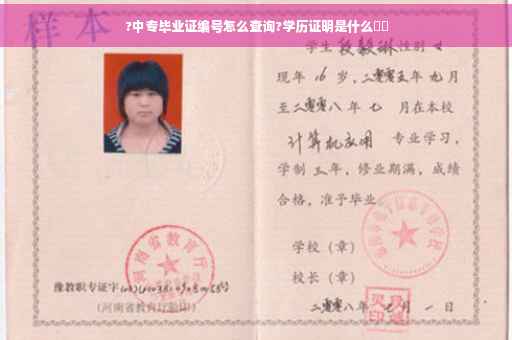 ?中专毕业证编号怎么查询?学历证明是什么
样本
学生 段毅琳 性别 女
现年 16 岁,二零零五年 九 月
至二零零八年 七 月在本校
计算机应用 专业学习,
学制 三 年,修业期满,成绩
合格,准予毕业
学校(章)
校长(章)
二零零八年 七 月 一 日
河南省教育厅
豫教职专证字
(河南省教育厅验印)